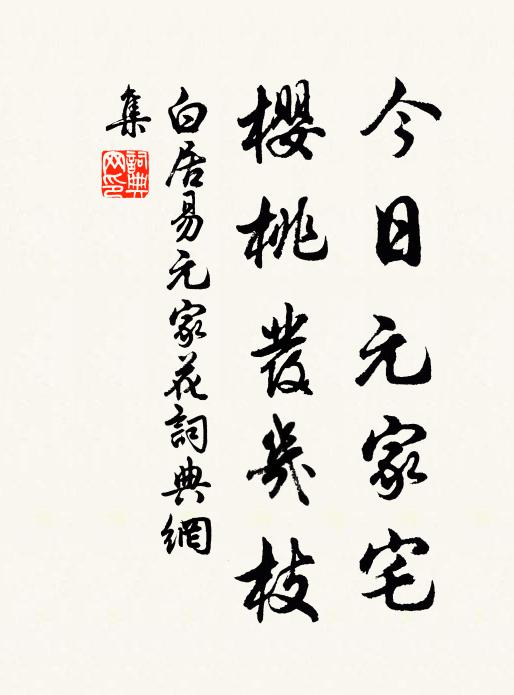 今日元家宅
櫻桃發幾枝
白居易元家花詞典網
集
詞典網印